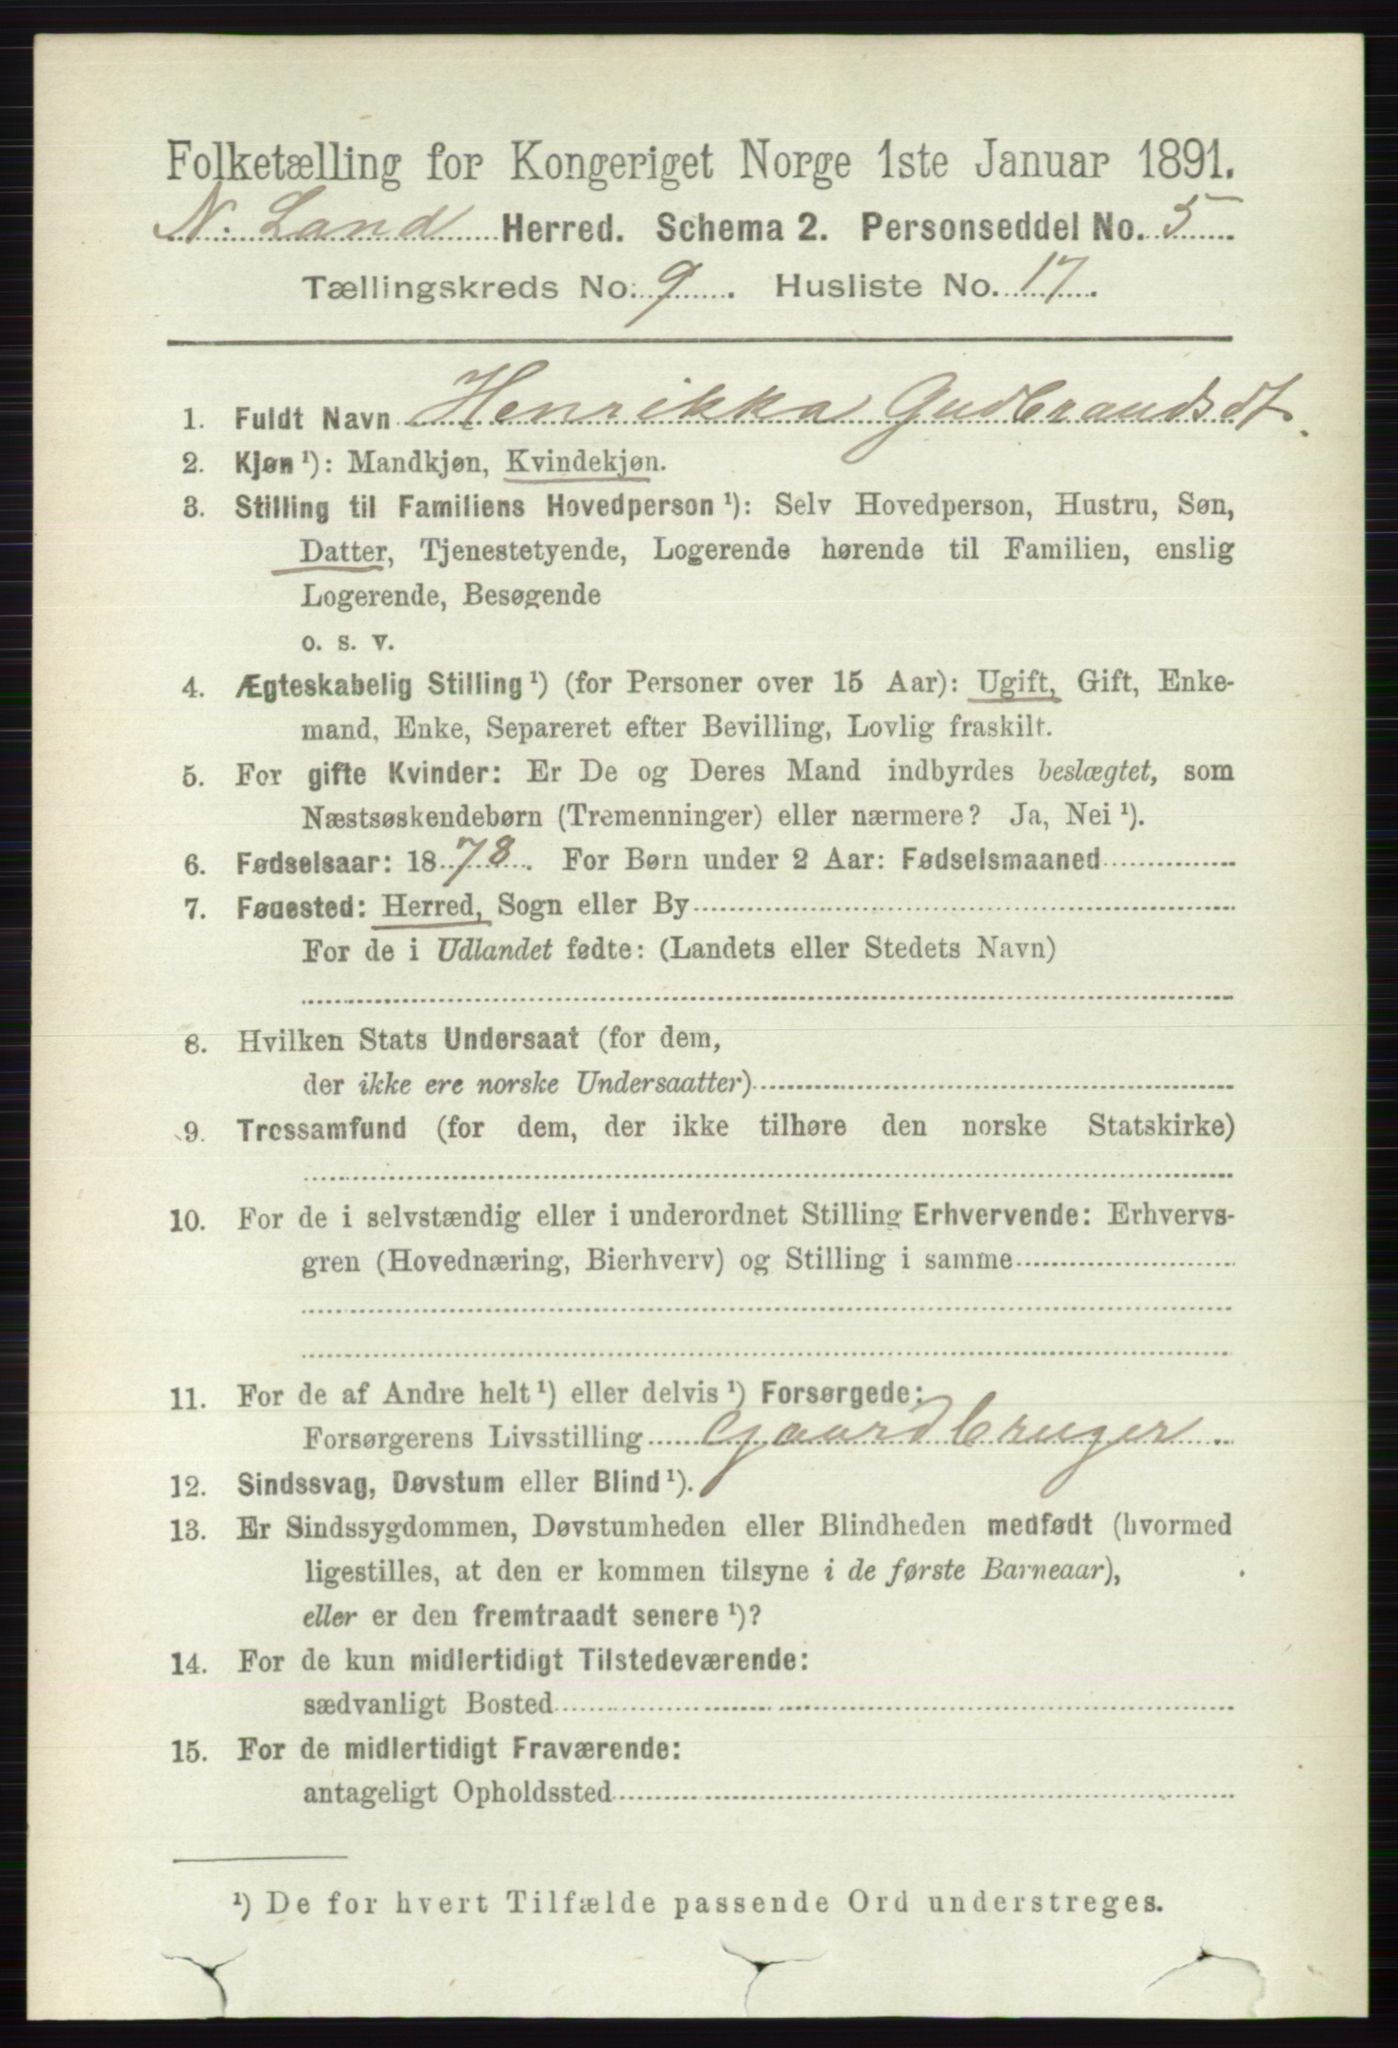 Folketælling for Kongeriget Norge 1ste Januar 1891.
N. Land Herred. Schema 2. Personseddel No. 5
Tællingskreds No. 9. Husliste No. 17.
1. Fuldt Navn Henrikka Gudbrandsdt.
2. Kjøn ¹): Mandkjøn, Kvindekjøn.
3. Stilling til Familiens Hovedperson ¹): Selv Hovedperson, Hustru, Søn,
Datter, Tjenestetyende, Logerende hørende til Familien, enslig
Logerende, Besøgende
o. s. v.
4. Ægteskabelig Stilling ¹) (for Personer over 15 Aar): Ugift, Gift, Enke-
mand, Enke, Separeret efter Bevilling, Lovlig fraskilt.
5. For gifte Kvinder: Er De og Deres Mand indbyrdes beslægtet, som
Næstsøskendebørn (Tremenninger) eller nærmere? Ja, Nei ¹).
6. Fødselsaar: 1878. For Børn under 2 Aar: Fødselsmaaned
7. Fødested: Herred, Sogn eller By
For de i Udlandet fødte: (Landets eller Stedets Navn)
8. Hvilken Stats Undersaat (for dem,
der ikke ere norske Undersaatter)
9. Trossamfund (for dem, der ikke tilhøre den norske Statskirke)
10. For de i selvstændig eller i underordnet Stilling Erhvervende: Erhvervs-
gren (Hovednæring, Bierhverv) og Stilling i samme
11. For de af Andre helt ¹) eller delvis ¹) Forsørgede:
Forsørgerens Livsstilling Gaardbruger.
12. Sindssvag, Døvstum eller Blind ¹).
13. Er Sindssygdommen, Døvstumheden eller Blindheden medfødt (hvormed
ligestilles, at den er kommen tilsyne i de første Barneaar),
eller er den fremtraadt senere ¹)?
14. For de kun midlertidigt Tilstedeværende:
sædvanligt Bosted
15. For de midlertidigt Fraværende:
antageligt Opholdssted
¹) De for hvert Tilfælde passende Ord understreges.